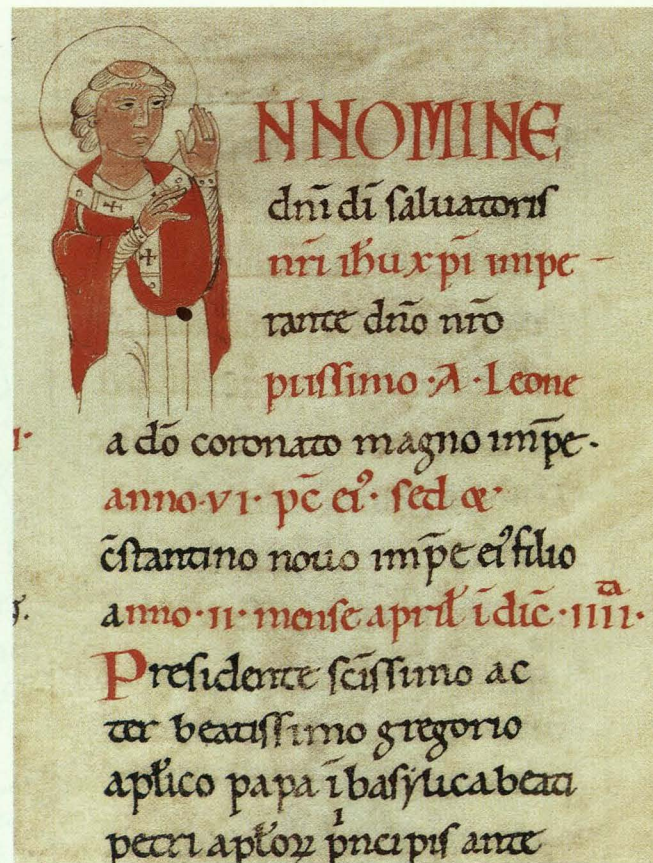 NNOMINE
dn̄i dī saluatoris
nr̄i ih̄u xp̄i impe
rante dn̄o nr̄o
piissimo ·A· Leone
a dō coronato magno imp̄e·
anno·vi· pc̄ ei᾽· sed &·
c̄stantino nouo imp̄e ei᾽ filio
anno·ii· mense april̄ ī dic̄·iiii·ta
Presidente sc̄issimo ac
ter beatissimo gregorio
apl̄ico papa ī basylica beati
petri apl̄oꝝ pⁱncipis ante